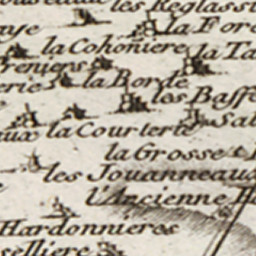 les Reglass
la Fore
nse
la Cohoniere la Ta
reniers
erie la Borde
les Basse
aux la Courterie Sal
la Grosse
les Jouanneaux
l'Ancienne
Hardonnieres
selliere